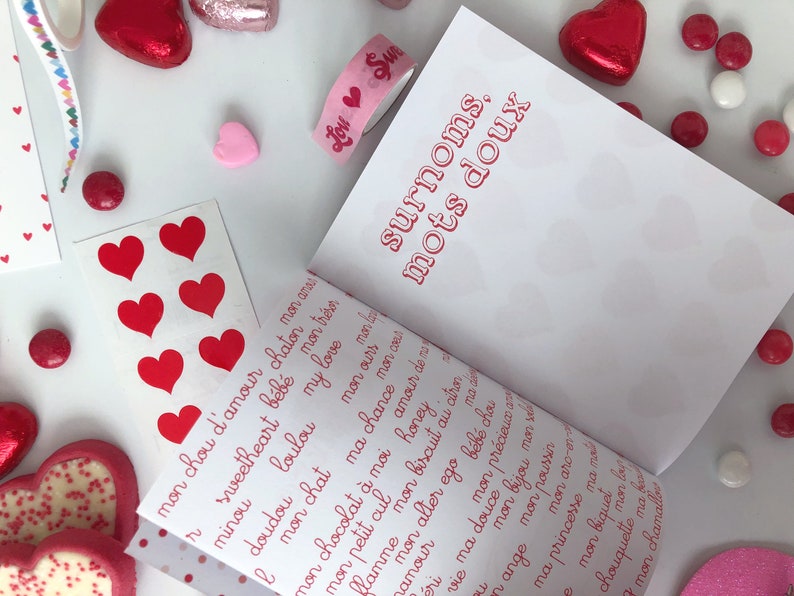 Love
Swe
surnoms,
mots doux
mon chou d'amour chaton mon amour
sweetheart bébé mon trésor
minou loulou my love
doudou
mon chat mon ours
ma chance mon coeur
mon chocolat à moi amour de ma
mon petit cul honey
flamme mon biscuit au citron
mon alter ego bébé chou
vie ma douce mon précieux
mon bijou mon soleil
ange mon poussin
ma princesse mon arc-en-
mon biquet
chouquette mon loup
mon chamallow